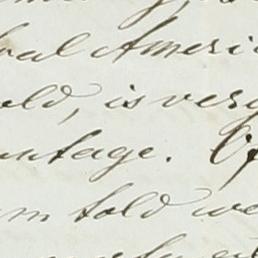 ral Americ
old, is very
antage. Of
m told we